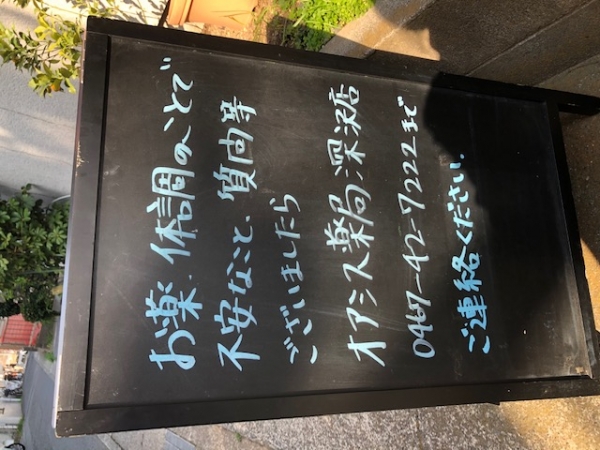 お薬、体調のことで
不安なこと、質問等
ございましたら
オアシス薬局 深沢店
0467-42-7222まで
ご連絡ください。